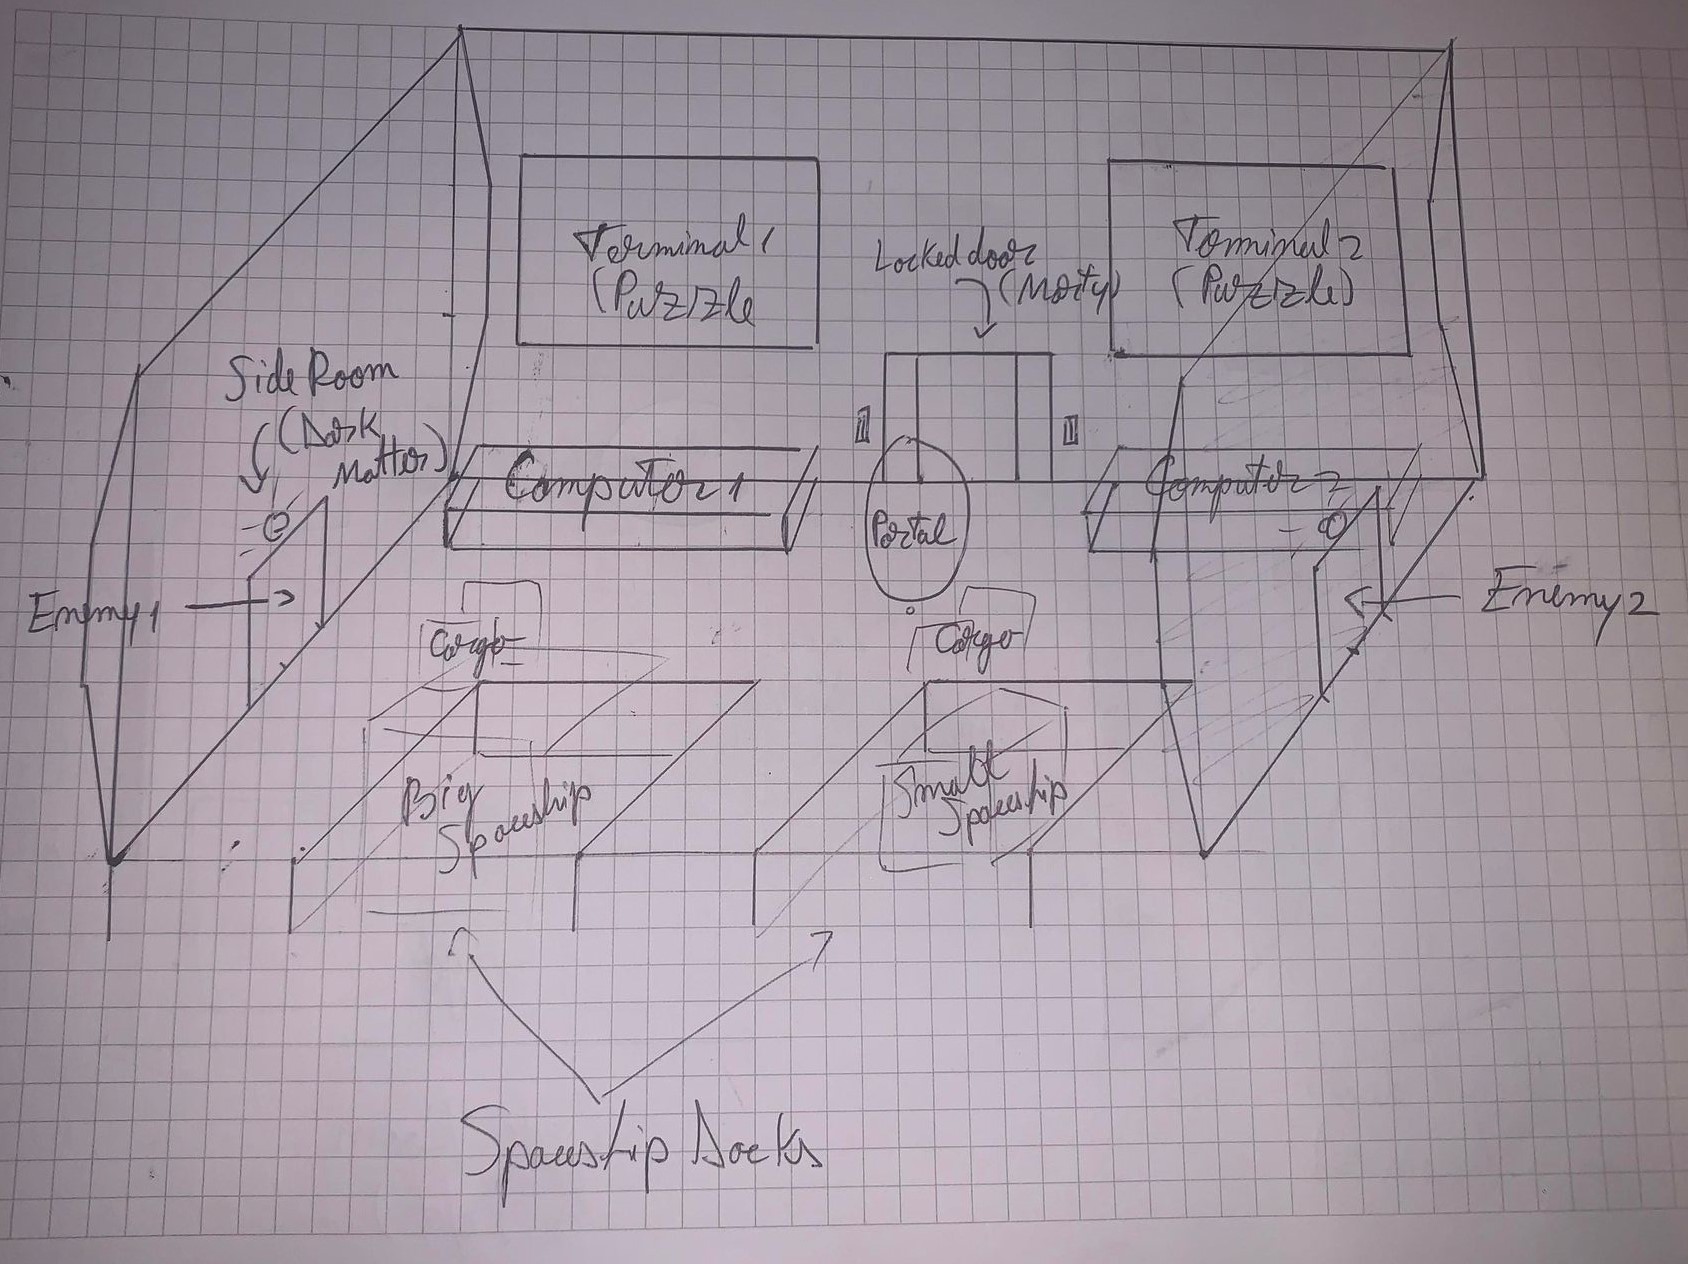 Terminal 1
(Puzzle
Locked door
(Morty)
Terminal 2
(Puzzle)
Side Room
(Dark
Matter)
Computer 1
Computer 2
Portal
Enemy 1
Enemy 2
Cargo
Cargo
Big
Spaceship
Small
Spaceship
Spaceship Docks